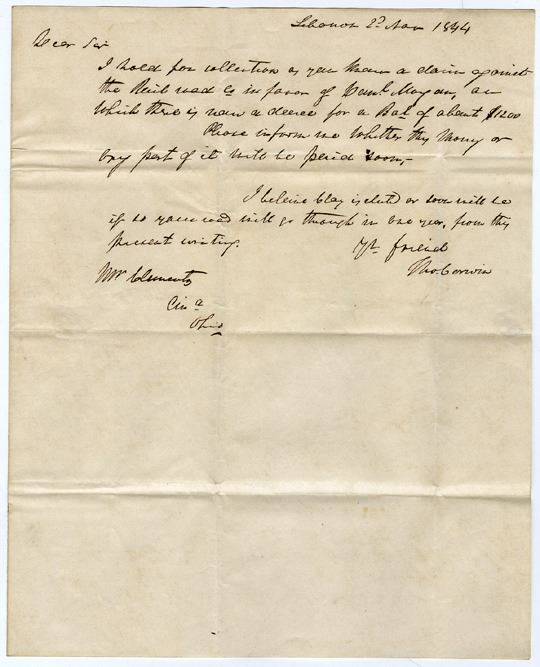 Lebanon 2d Nov 1844
Dear Sir
I hold for collection as you know a claim against
the Rail road Co in favor of Saml Mayan, on
which there is now a decree for a Bal of about $1200
Please inform me Whether this Money or
any part of it will be paid soon,-
I believe Clay is elected or soon will be
if so your road will go through in one year, from this
present writing.
Yr. friend
Tho. Corwin
Mr Clements
Cin a
Ohio